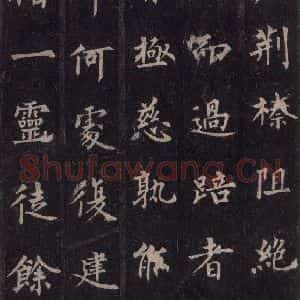 荆榛阻絶
而過踣者
極慈孰能
何處復建
一靈徒餘
Shufawang.CN